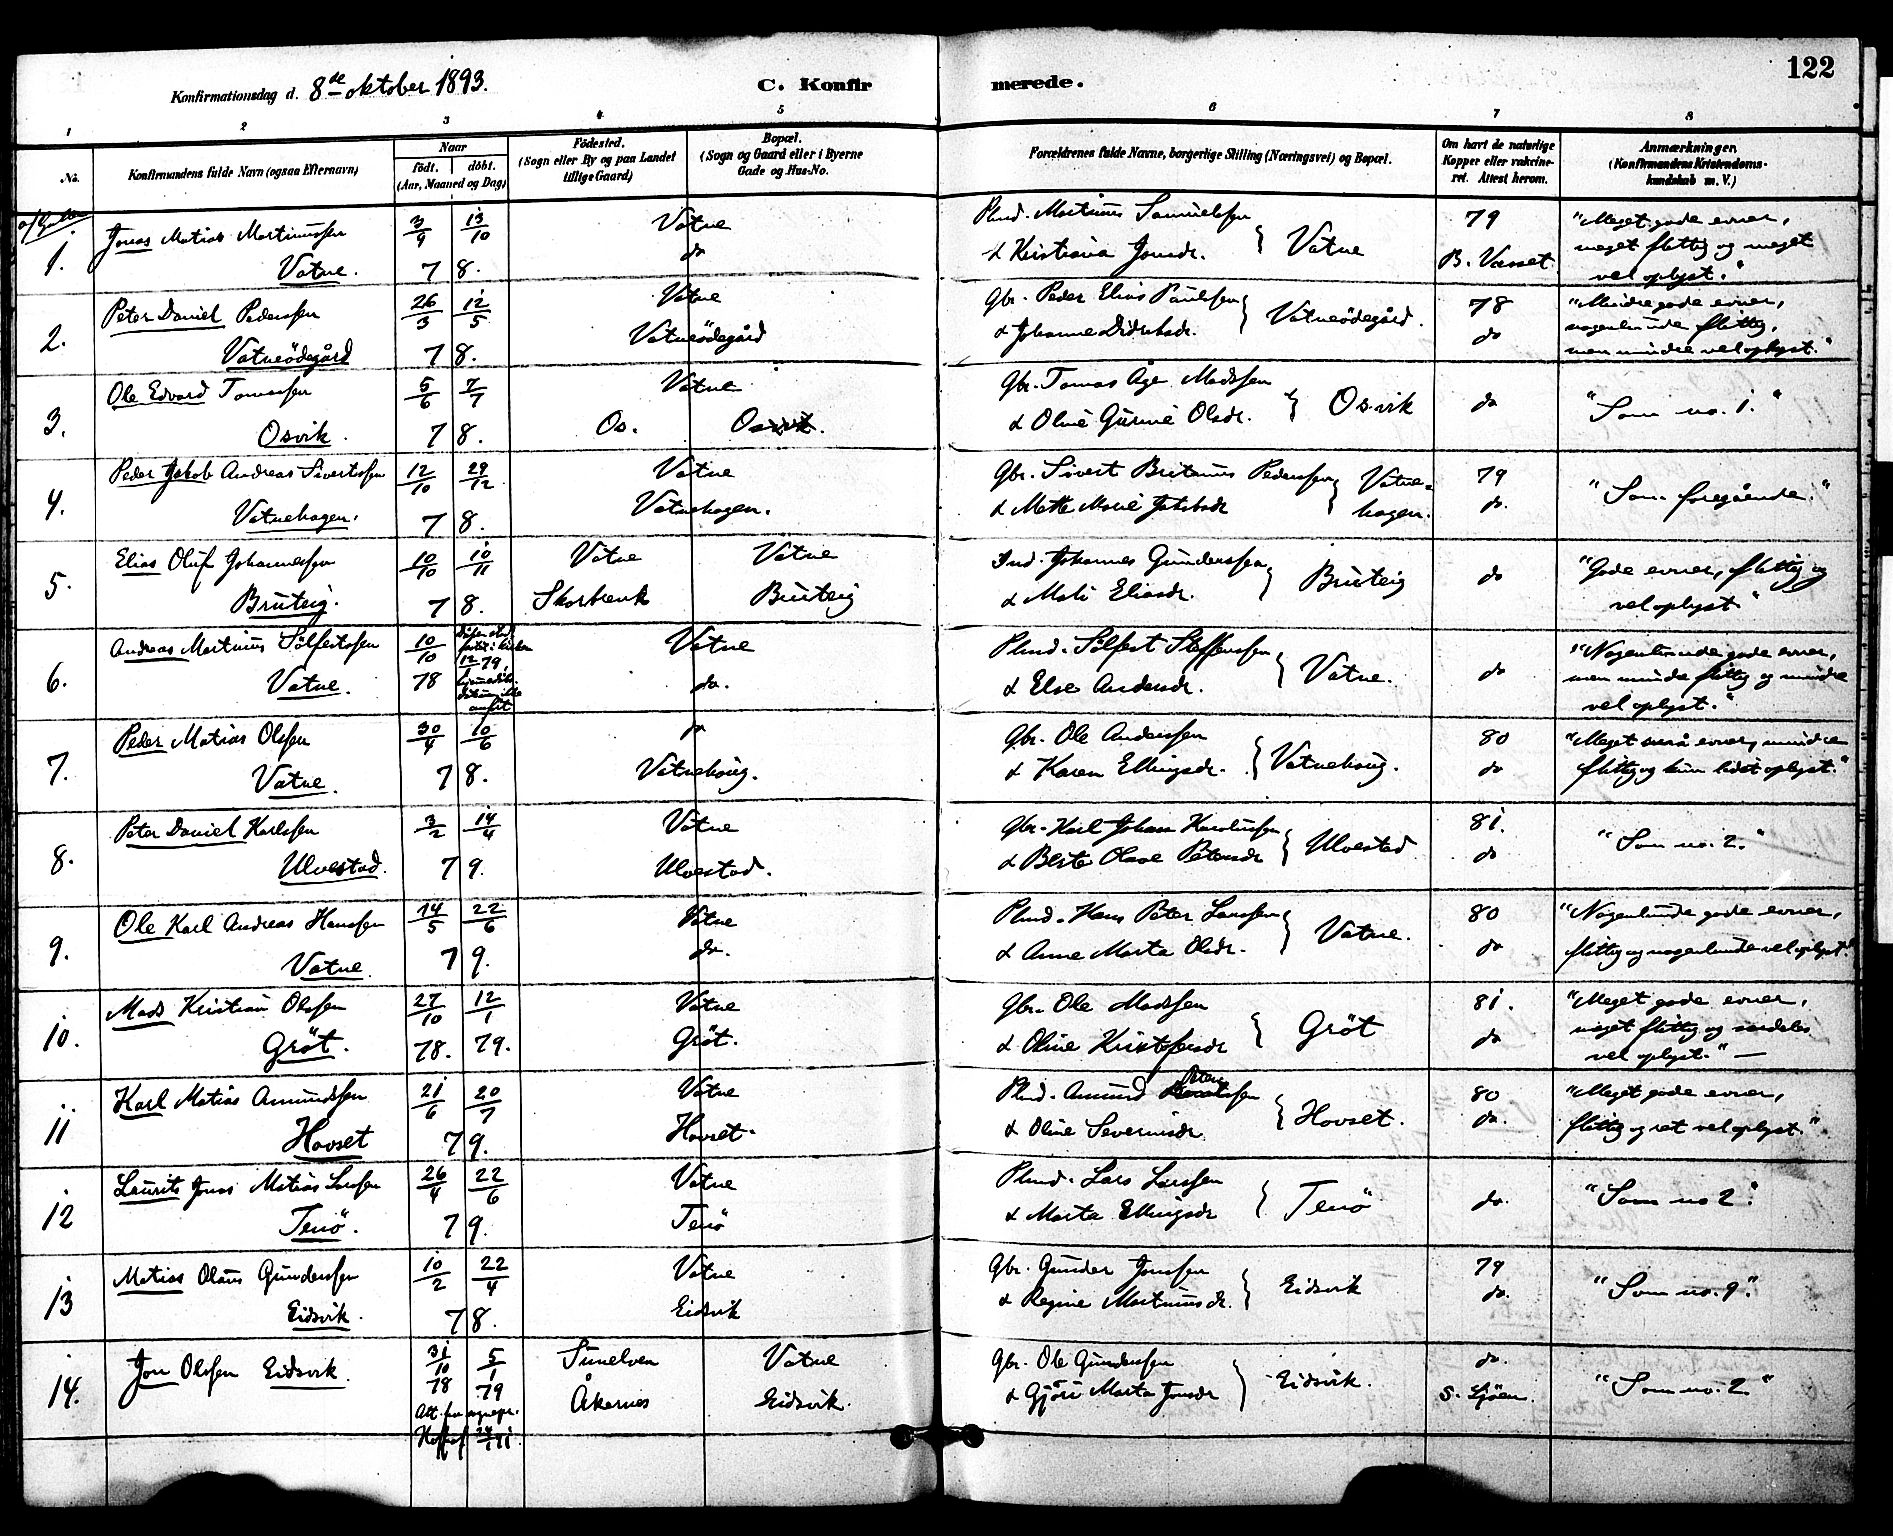 122
Konfirmationsdag d. 8de oktober 1893.
C. Konfirmerede.
1 2 3 4 5 6 7 8
No.
Konfirmandens fulde Navn (ogsaa Efternavn)
Naar
födt. döbt.
(Aar, Maaned og Dag)
Födested.
(Sogn eller By og paa Landet
tillige Gaard)
Bopæl.
(Sogn og Gaard eller i Byerne
Gade og Hus-No.
Forældrenes fulde Navne, borgerlige Stilling (Næringsvei) og Bopæl.
Om havt de naturlige
Kopper eller vakcine-
ret. Attest herom.
Anmærkninger.
(Konfirmandens Kristendoms-
kundskab m. V.)
1. Jonas Matias Martinussen 3/9 13/10 Vatne Martinus Samuelsen 79 "Meget gode evner,
Vatne. 78. do & Kristiana Jonsdr. } Vatne B. Vasset meget flittig og meget
vel oplyst."
2. Peter Daniel Pedersen 26/3 12/5 Vatne Gbr. Peder Elias Paulsen 78 "Mindre gode evner,
Vatneödegård 78. Vatneödegård & Johanne Didriksdr. } Vatneödegård. do nogenlunde flittig,
men mindre vel oplyst."
3. Ole Edvard Tomassen 5/6 7/7 Vatne Gbr. Tomas Åge Madssen do "Som no. 1."
Osvik. 78. Os. Osvik. & Oline Gurine Olsdr. } Osvik
4. Peder Jakob Andreas Sivertssen 12/10 29/12 Vatne Gbr. Sivert Pedersen } Vatne- 79 "Som foregående."
Vatnehagen. 78. Vatnehagen. & Mette Marie Jakobsdr hagen. do.
5. Elias Oluf Johannessen 10/10 10/11 Vatne Vatne Ind. Johannes Gunderssen do "Gode evner, flittig og
Bruteig. 78. Bruteig & Mali Eliasdr. } Bruteig vel oplyst."
6. Andreas Martinus Sölfestssen 10/10 12/79, Vatne Sölfest Steffenssen do "Nogenlunde gode evner,
Vatne. 78 do. & Else Andersdr. } Vatne. men mindre flittig og mindre
vel oplyst."
7. Peder Matias Olssen 30/4 10/6 do Gbr. Ole Anderssen 80 "Meget små evner, mindre
Vatne. 78. Vatnehaug. & Karen Ellingsdr. } Vatnehaug. do flittig og kun lidet oplyst."
8. Peter Daniel Karlssen 3/2 14/4 Vatne Gbr. Karl Johan 81. "Som no. 2."
Ulvestad. 79. Ulvestad. & Berte Olave Petersdr } Ulvestad do
9. Ole Karl Andreas Hanssen 14/5 22/6 Vatne Hans Peter Larssen 80 "Nogenlunde gode evner,
Vatne. 79. do. & Anne Marta Olsdr. } Vatne. do flittig og nogenlunde vel oplyst."
10. Mads Kristian Olssen 27/10 12/1 Vatne Gbr. Ole Madssen 81. "Meget gode evner,
Gröt. 78. 79. Gröt. & Oline Kristofersdr } Gröt do meget flittig og særdeles
vel oplyst." —
11 Karl Matias Amundssen 21/6 20/7 Vatne Amund Peterssen 80 "Meget gode evner,
Hovset 79. Hovset. & Oline Severinsdr. } Hovset. do. flittig og ret vel oplyst."
12 Laurits Jonas Matias Larssen 26/4 22/6 Vatne Lars Larssen do. "Som no 2".
Tenö. 79. Tenö & Marta Ellingsdr } Tenö
13 Matias Olaus Gunderssen 10/2 22/4 Vatne Gbr. Gunder Jonssen 79 "Som no. 9".
Eidsvik. 78. Eidsvik & Regine Martinusdr. } Eidsvik do.
14. Jon Olssen Eidsvik. 31/10 5/1 Sunelven Vatne Gbr. Ole Gunderssen do. "Som no. 2"
78 79 Åkernes Eidsvik. & Gjöri Marta Jonsdr } Eidsvik. S. Sjöen.